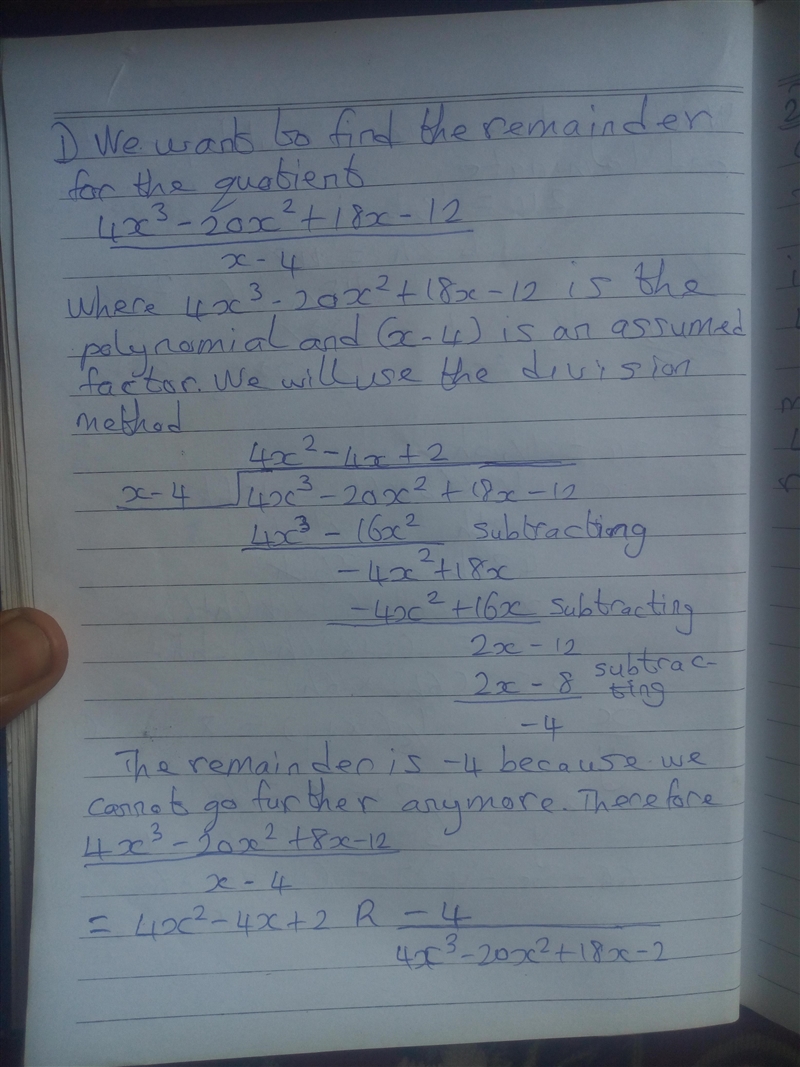 1) We want to find the remainder
for the quotient
4x³ - 20x² + 18x - 12
x - 4
Where 4x³ - 20x² + 18x - 12 is the
polynomial and (x - 4) is an assumed
factor. We will use the division
method
4x² - 4x + 2
x - 4 √4x³ - 20x² + 18x - 12
4x³ - 16x² subtracting
- 4x² + 18x
- 4x² + 16x subtracting
2x - 12
2x - 8 subtrac-
ting
- 4
The remainder is -4 because we
cannot go further anymore. Therefore
4x³ - 20x² + 8x - 12
x - 4
= 4x² - 4x + 2 R - 4
4x³ - 20x² + 18x - 2
2